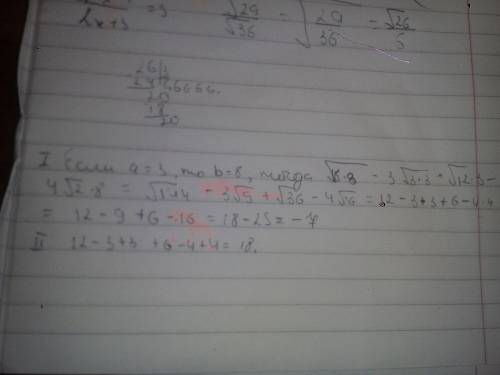 2x+3 = 3 √29/√36 = √29/36 = √26/6
26
20
18
20
I Если a=3, то b=8, тогда √18·8 - 3√3·3 + √12·3 -
4√2·8 = √144 - 3√9 + √36 - 4√16 = 12-3·3+6-4·4
= 12-9+6-16 = 18-25 = -7
II 12-3+3 +6-4+4=18.